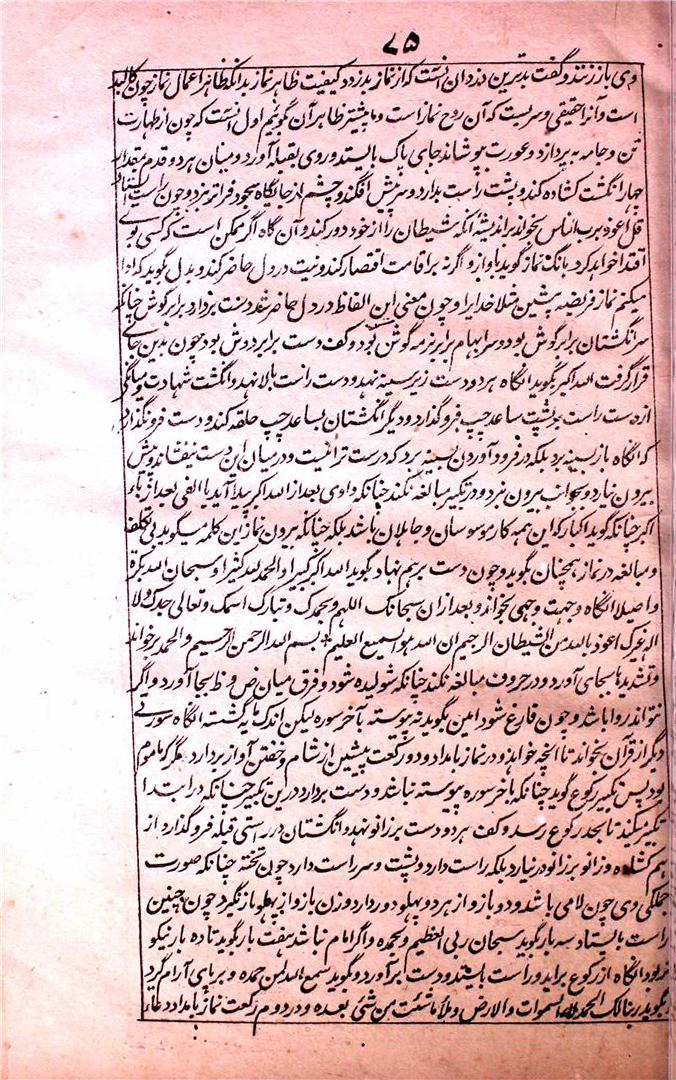 ۷۵
وی باز زنند و گفت بدترین دزدان آنست که از نماز بدزدد کیفیت ظاهر نماز بدانکه ظاهر اعمال نماز چون کالبد
است و انرا حقیقی و سریست که آن روح نماز است و ما پیشتر ظاهر آن گوئیم اول آنست که چون از طهارت
تن و جامه بپردازد و عورت بپوشاند جای پاک بایستد و روی بقبله آورد و میان هر دو قدم مقدار
چهار انگشت کشاده کند و پشت راست بدارد و سر پیش افگند و چشم از جایگاه سجود فراتر نبرد و چون راست ایستاد
قل اعوذ برب الناس بخواند بر اندیشه آنکه شیطان را از خود دور کند و آن گاه اگر ممکن است که کسی بوی
اقتدا خواهد کرد بانگ نماز گوید باواز و اگر نه بر اقامت اقتصار کند و نیت در دل حاضر کند و بدل گوید که ادا
میکنم نماز فریضه پیشین مثلا خدایرا و چون معنی این الفاظ در دل حاضر شد دست بردارد برابر گوش چنانکه
سر انگشتان برابر گوش بود و سر ابهام برابر نرمه گوش بود و کف دست برابر دوش بود چون بدین جای
قرار گرفت الله اکبر بگوید انگاه هر دو دست زیر سینه نهد و دست راست بالا نهد و انگشت شهادت و میانگی
از دست راست بر پشت ساعد چپ فرو گذارد و دیگر انگشتان بساعد چپ حلقه کند و دست فرو نگذارد
که انگاه باز بسینه برد بلکه در فرود آوردن بسینه برد که درست تر اینست و در میان این دست نیفشاند و پیش
بیرون نیارد و بجوانب بیرون نبرد و در تکبیر مبالغه نکند چنانکه واوی بعد از الله اکبر پیدا آید یا الفی بعد از باء
اکبر چنانکه گوید اکبار که این همه کار موسوسان و جاهلان باشد بلکه چنانکه بیرون نماز این کلمه میگوید بی تکلف
و مبالغه در نماز همچنان بگوید و چون دست بر هم نهاد بگوید الله اکبر کبیرا و الحمد لله کثیرا و سبحان الله بکرة
و اصیلا انگاه وجهت وجهی بخواند و بعد از ان سبحانک اللهم و بحمدک و تبارک اسمک و تعالی جدک و لا
اله غیرک اعوذ بالله من الشیطان الرجیم ان الله هو السمیع العلیم بسم الله الرحمن الرحیم و الحمد بر خواند
و تشدیدها بجای آورد و در حروف مبالغه نکند چنانکه شولیده شود و فرق میان ض و ظ بجا آورد و اگر
نتواند روا باشد و چون فارغ شود آمین بگوید نه پیوسته بآخر سوره لیکن اندک مایه گسسته انگاه سورتی
دیگر از قرآن بخواند تا آنچه خواهد و در نماز بامداد و دو رکعت پیشین از شام و خفتن آواز بردارد مگر که ماموم
بود پس تکبیر رکوع گوید چنانکه باخر سوره پیوسته نباشد و دست بردارد درین تکبیر چنانکه در ابتدا
تکبیر میکند تا بحد رکوع رسد و کف هر دو دست بر زانو نهد و انگشتان در راستی قبله فرو گذارد از
هم کشاده و زانو بر زانو در نیارد بلکه راست دارد و پشت و سر راست دارد چون تخته چنانکه صورت
جملگی وی چون لامی باشد و دو بازو از هر دو پهلو دور دارد و زن بازو از پهلو باز نگیرد چون چنین
راست بایستاد سه بار بگوید سبحان ربی العظیم و بحمده و اگر امام نباشد هفت بار بگوید تا ده بار نیکو
تر بود انگاه از رکوع براید و راست بایستد و دست برآورد و گوید سمع الله لمن حمده و بر پای آرام گیرد
بگوید ربنا لک الحمد ملأ السموات و الارض و ملأ ما شئت من شئ بعده و در دوم رکعت نماز بامداد دعاء